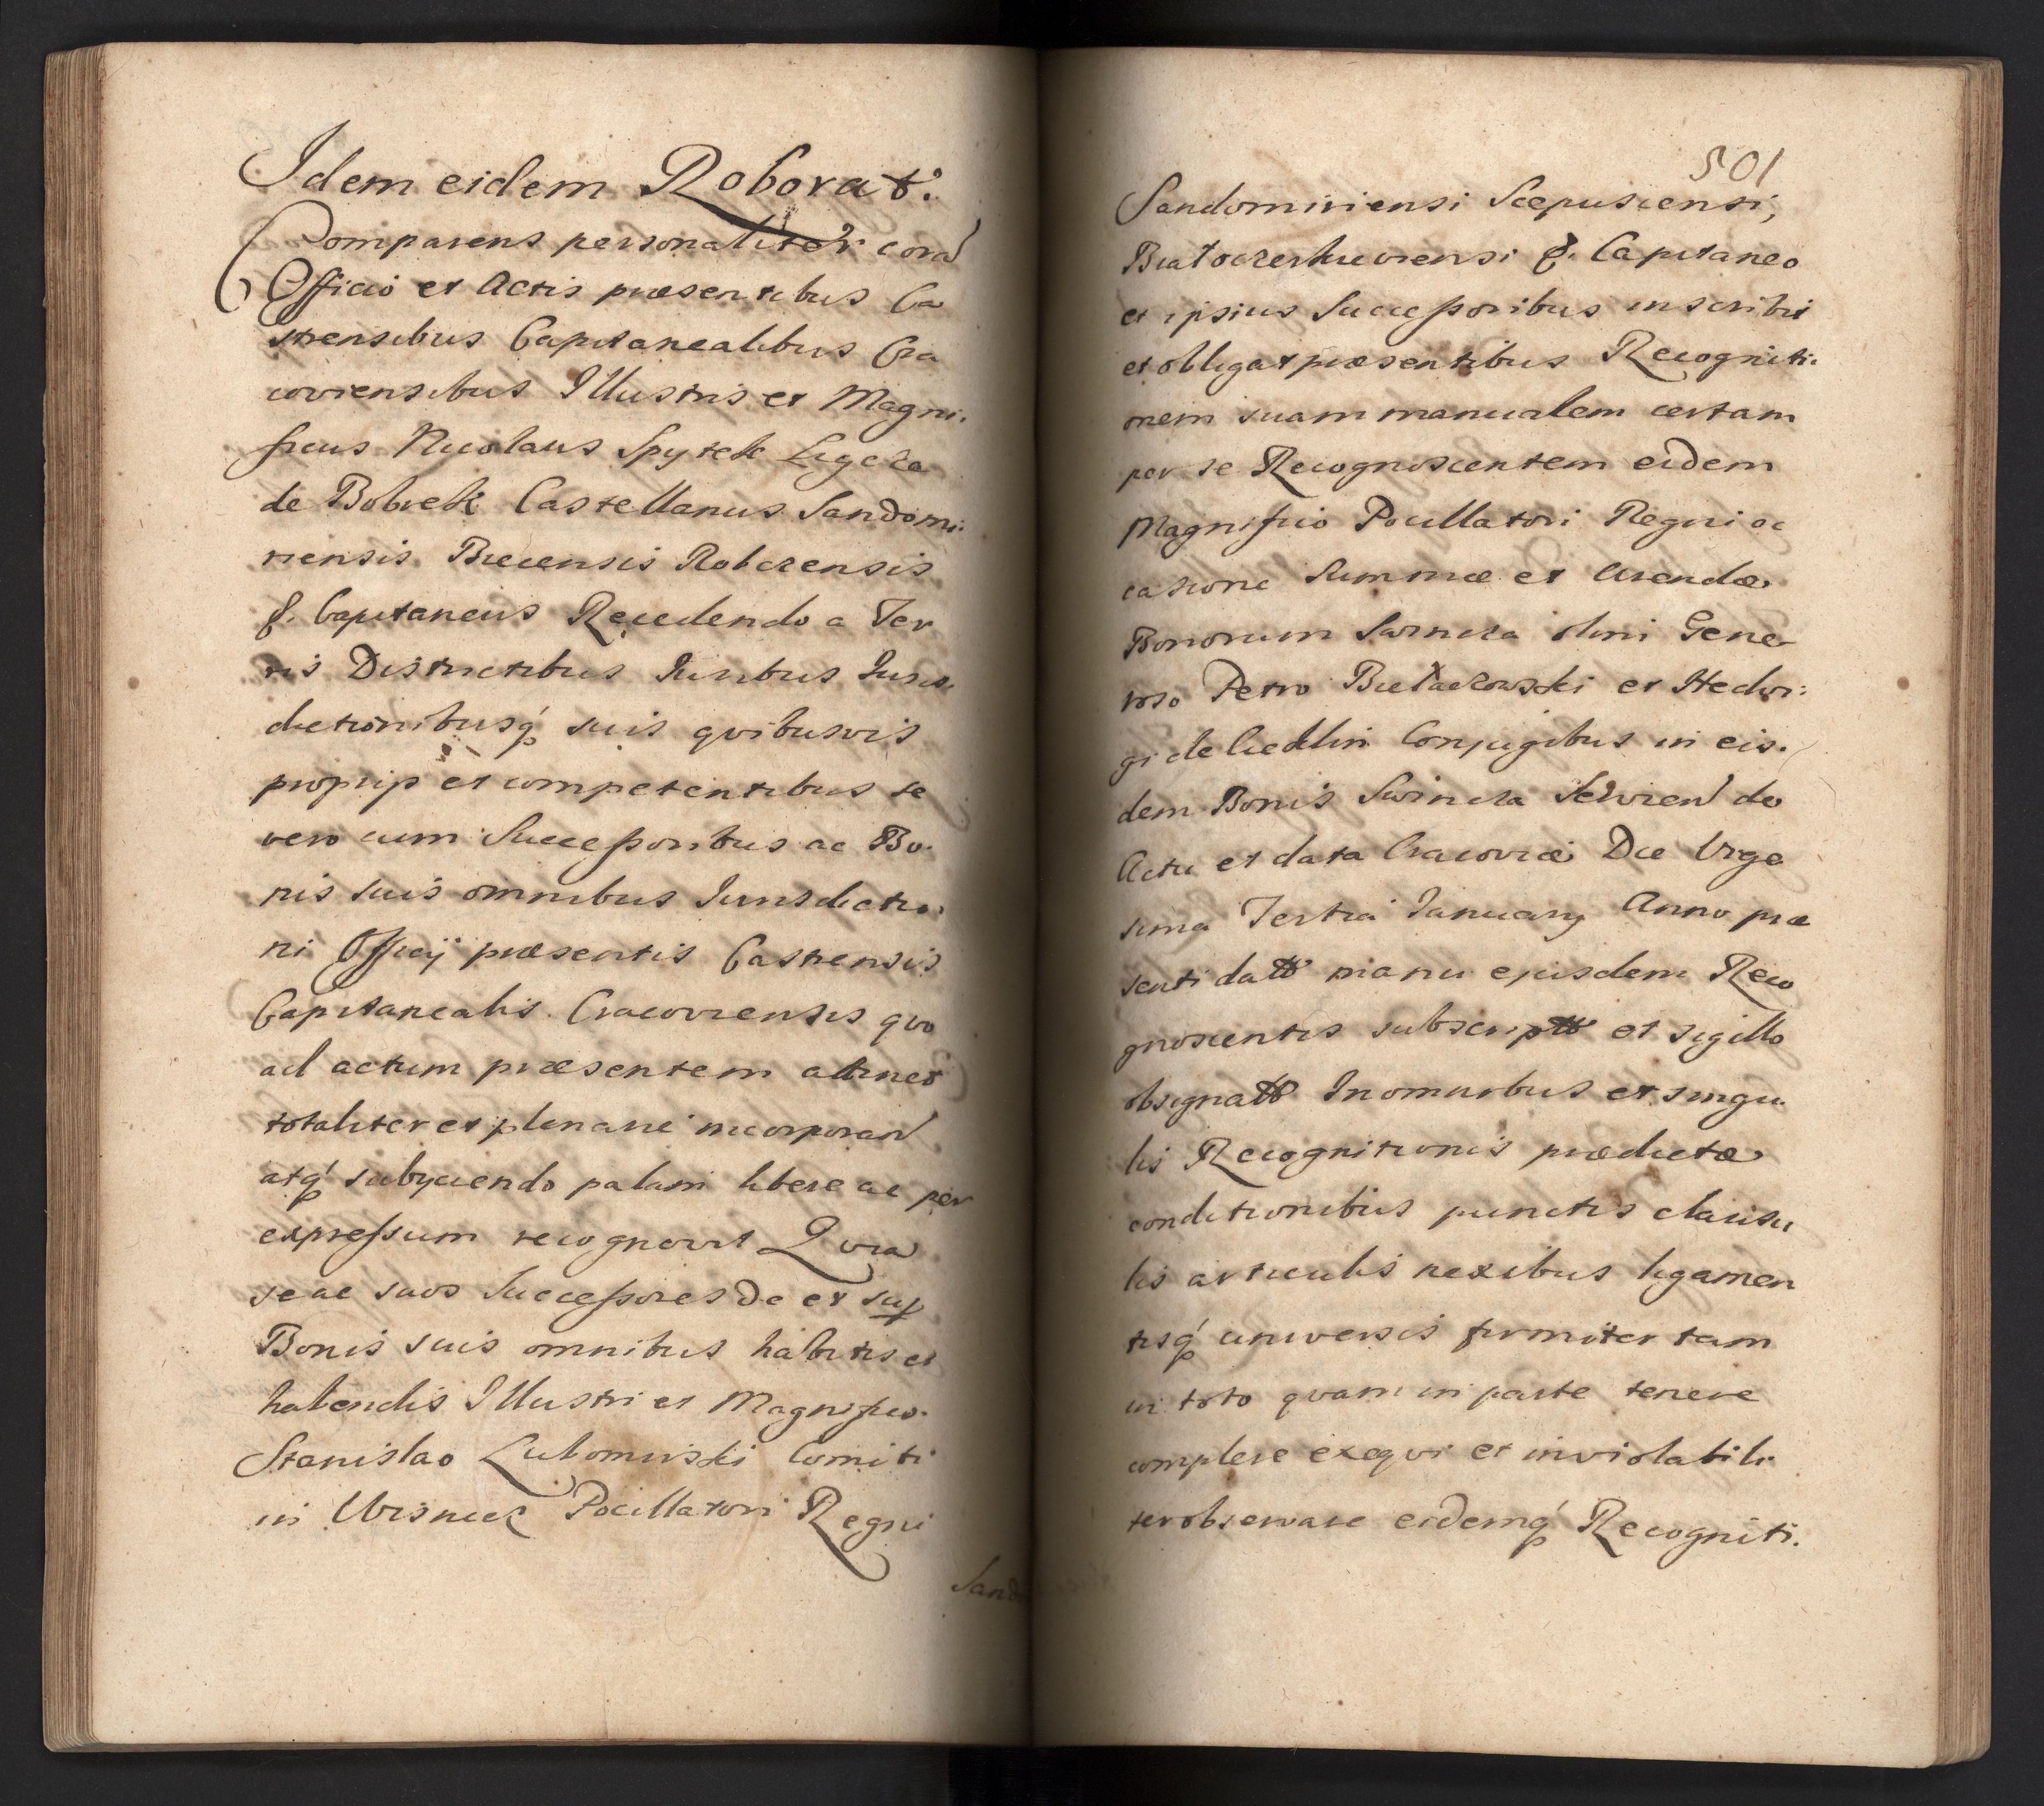 Idem eidem Roborat.
Comparens personaliter cora
Officio et Actis præsentibus Ca
strensibus Capitanealibus Cra
coviensibus Illustris et Magni.
ficus Nicolaus Spytek Ligeza
de Bobrek Castellanus Sandomi.
riensis Biecensis Robczensis
&. Capitaneus Recedendo a Ter
ris Districtibus Iuribus Iuris
dictionibusq́ suis qvibusvis
proprijs et competentibus se
vero cum Successoribus ac Bo.
nis suis omnibus Iurisdictio.
ni Officij præsentis Castrensis
Capitanealis Cracoviensis qvo
ad actum præsentem attinet
totaliter et plenarie incorporan
atq́ subyciendo palam libere ac per
expressum recognovit Qvia
se ac suos Successores De et sup
Bonis suis omnibus habitis et
habendis Illustri et Magnifico.
Stanislao Lubomirski Comiti
in Wisnicz Pocillatori Regni
Sando
501
Sandomiriensi Scepusiensi,
Białocerkieviensi &. Capitaneo
et ipsius Successoribus inscribit
et obligat præsentibus Recogniti.
onem suam manualem certam
per se Recognoscentem eidem
Magnifico Pocillatori Regni oc
casione Summæ et Arendæ
Bonorum Swincza olim Gene
roso Petro Bełaczowski et Hedvi:
gi de Conjugibus in eis.
dem Bonis Swincza Serviend de
Actu et data Cracoviæ Die Vige
sima Tertia Ianuarij Anno præ
senti datt manu ejusdem Reco
gnoscentis subscriptt et sigillo
obsignatt In omnibus et singu.
lis Recognitionis prædictæ
conditionibus punctis clausu
lis articulis nexibus ligamen
tisq́ universis firmiter tam
in toto qvam in parte tenere
complere exeqvi et inviolabili
ter observare eidemq́ Recogniti.